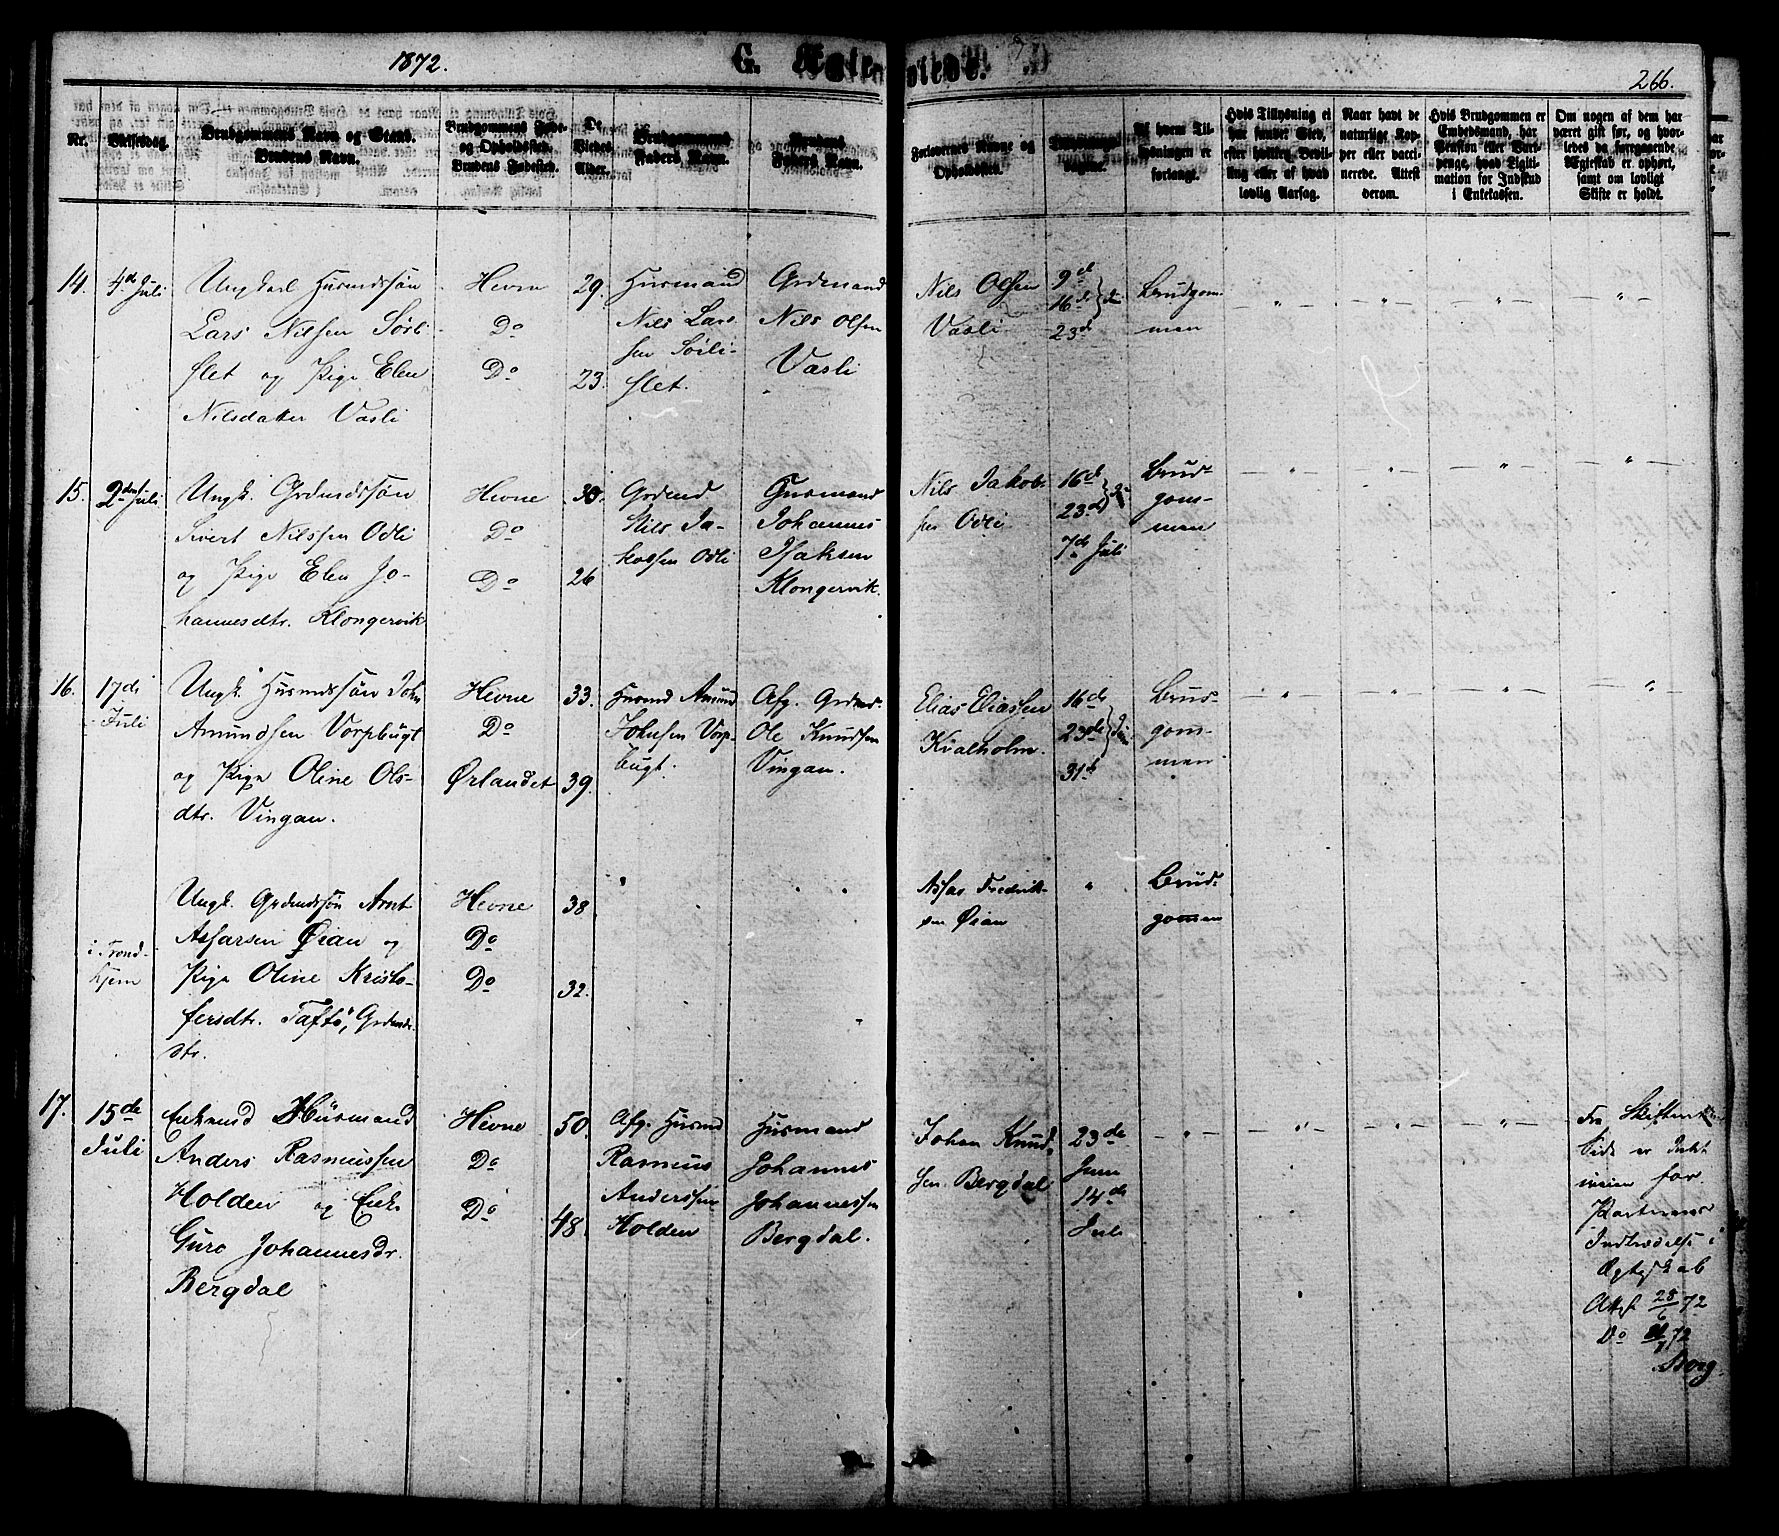 1872.
G.
266.
Nr.
Vielsesdag.
Brudgommens Navn og Stand.
Brudens Navn.
Brudgommens Føde-
og Opholdssted.
Brudens Fødested.
De
Viedes
Alder.
Brudgommens
Faders Navn.
Brudens
Faders Navn.
Forlovernes Navne og
Opholdssted.
Af hvem Til-
lysningen er
forlangt.
Hvis Tillysning ei
har fundet Sted,
efter hvilken Bevil-
ling eller af hvad
lovlig Aarsag.
Naar havt de
naturlige Kop-
per eller vacci-
nerede. Attest
derom.
Hvis Brudgommen er
Embedsmand, har
Pension eller Vart-
penge, hvad Ligiti-
mation for Indskud
i Enkekassen.
Om nogen af dem har
været gift før, og hvor-
ledes da foregaaende
Ægteskab er ophørt,
samt om lovligt
Skifte er holdt.
14.
4de Juli
Ungkarl Husmdssøn
Lars Nilsen Sørli
slet og Pige Elen
Nilsdatter Vasli
Hevne
Do
Do
29.
23.
Husmand
Nils Lars
sen Sørli-
slet.
Grdmand
Nils Olsen
Vasli
Nils Olsen
Vasli
9de
16de
23de
Brudgom
men
15.
2den Juli
Ungk. Grdmdssøn
Sivert Nilssen Odli
og Pige Elen Jo-
hannesdtr. Klongervik
Hevne
Do
Do
30.
26
Grdmd
Nils Ja-
kobsen Odli
Husmand
Johannes
Isaksen
Klongervik.
Nils Jakob
sen Odli
16de
23de
7de Juli
Brud-
gom-
men
16.
17de
Juli
Ungk. Husmdssøn John
Amundsen Vorpbugt
og Pige Oline Ols-
dtr. Vingan.
Hevne
Do
Ørlandet
33.
39.
Husmd Amund
Johnsen Vorp-
bugt.
Afg. Grdmd
Ole Knudsen
Vingan.
Elias Eliassen
Kvalholm.
16de
23de
31de
Brud-
gom-
men
i Trond-
hjem
Ungk. Grdmdssøn Arnt
Assarsen Øian og
Pige Oline Kristo-
fersdtr. Taftø, Grdmds
dtr.
Hevne
Do
Do
38
32.
Assar Fredrik-
sen Øian
Brud-
gomen
17.
15de
Juli
Enkemd Husmand
Anders Rasmussen
Holden og Enke
Guro Johannesdr.
Bergdal
Hevne
Do
Do
50.
48.
Afg. Husmd
Rasmus
Anderssen
Holden
Husmand
Johannes
Johannessen
Bergdal.
Johan Knud
sen Bergdal
23de
Juni
14de
Juli
Fra Skifterettens
Side er Intet
iveien for
Parternes
Indtrædelse i
Ægteskab
Attest 28/6 72
Do
72
Borg